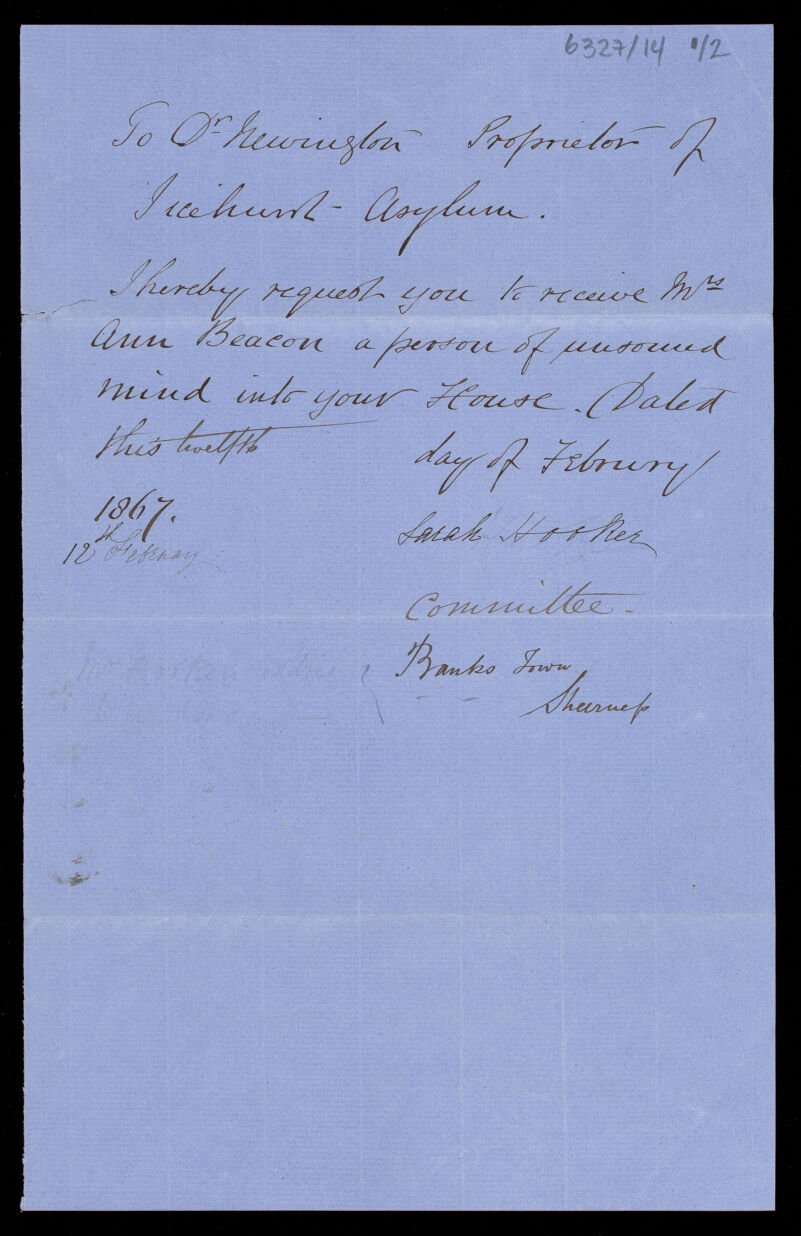 6327/14 1/2
To Dr Newington Proprietor of
Ticehurst Asylum.
I hereby request you to receive Mrs
Ann Beacon a person of unsound
mind into your House. Dated
this twelfth day of Februry
1867.
12th Februay
Sarah Hooker
Committee -
Banks Town
Sheerness